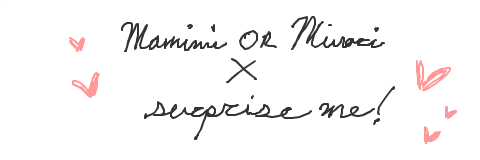 Mamimi OR
×
surprise me!